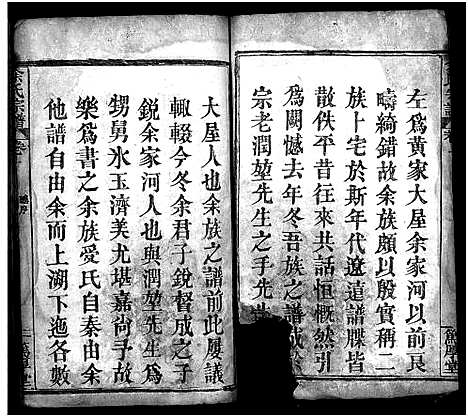 左爲黃家大屋余家河以前良
疇綺錯故余族頗以殷實稱二
族卜宅於斯年代遼遠譜牒皆
散佚平昔往來共話恒慨然引
爲闕憾去年冬吾族之譜成
宗老潤堃先生之手先
大屋人也余族之譜前此屢議
輒輟今冬余君子銳督成之子
銳余家河人也與潤堃先生爲
甥舅氷玉濟美尤堪嘉尚予
樂爲書之余族受氏自秦由余
他譜自由余而上溯下迤各數
余氏宗譜